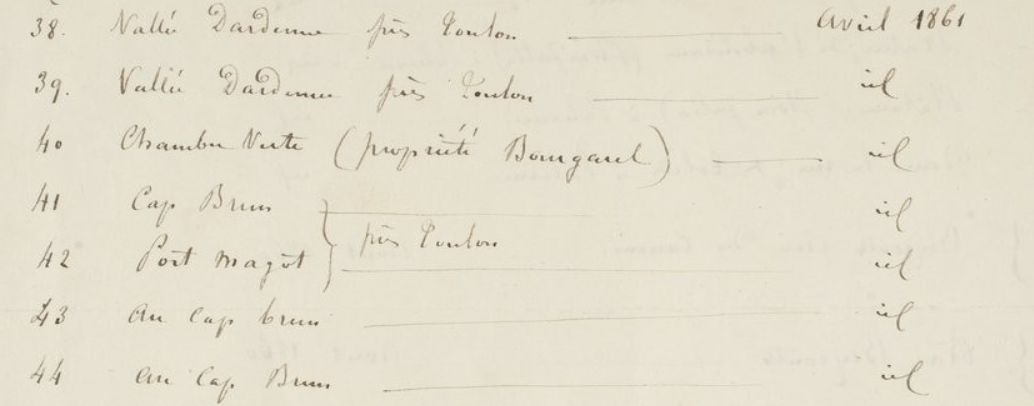 38. Vallée Dardenne près Toulon — Avril 1861
39. Vallée Dardenne près Toulon — id
40 Chambre Verte (propriété Bourgarel) — id
41 Cap Brun — id
près Toulon
42 Port Magot — id
43 au Cap brun — id
44 au Cap Brun — id